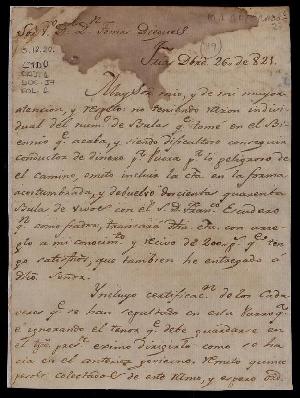 Sor Dn Tomas Dieguez
Dbre 26,, de 821.
Muy Sor mio, y de mi mayor
atencion, y respeto: no teniendo razon indivi
dual del num.o de Bulas q.e tome en el Bi-
ennio q.e acaba, y siendo dificultoso conseguir
conductor de dinero pr. fuera pr. lo peligroso de
el camino, omito incluir la cta en la forma
acostumbrada, y debuelbo docientas quarenta
Bulas de vivos con el S.D. Franco Escudero
q.e como podra, transará dha. cta. con arre
glo a mi conocim.to y recivo de 200 q.e ten
go satisfhos, que tambien he entregado á
dho. Señor.
Yncluyo certificac.n de los Cada
veres q.e se han sepultado en esta
é ignorando el tenor q.e debe guardarse en
el preste. eximo dirigirlo como se ha
cia en el anterior govierno. Remito quince
pesos colectados de este Ramo, y espero